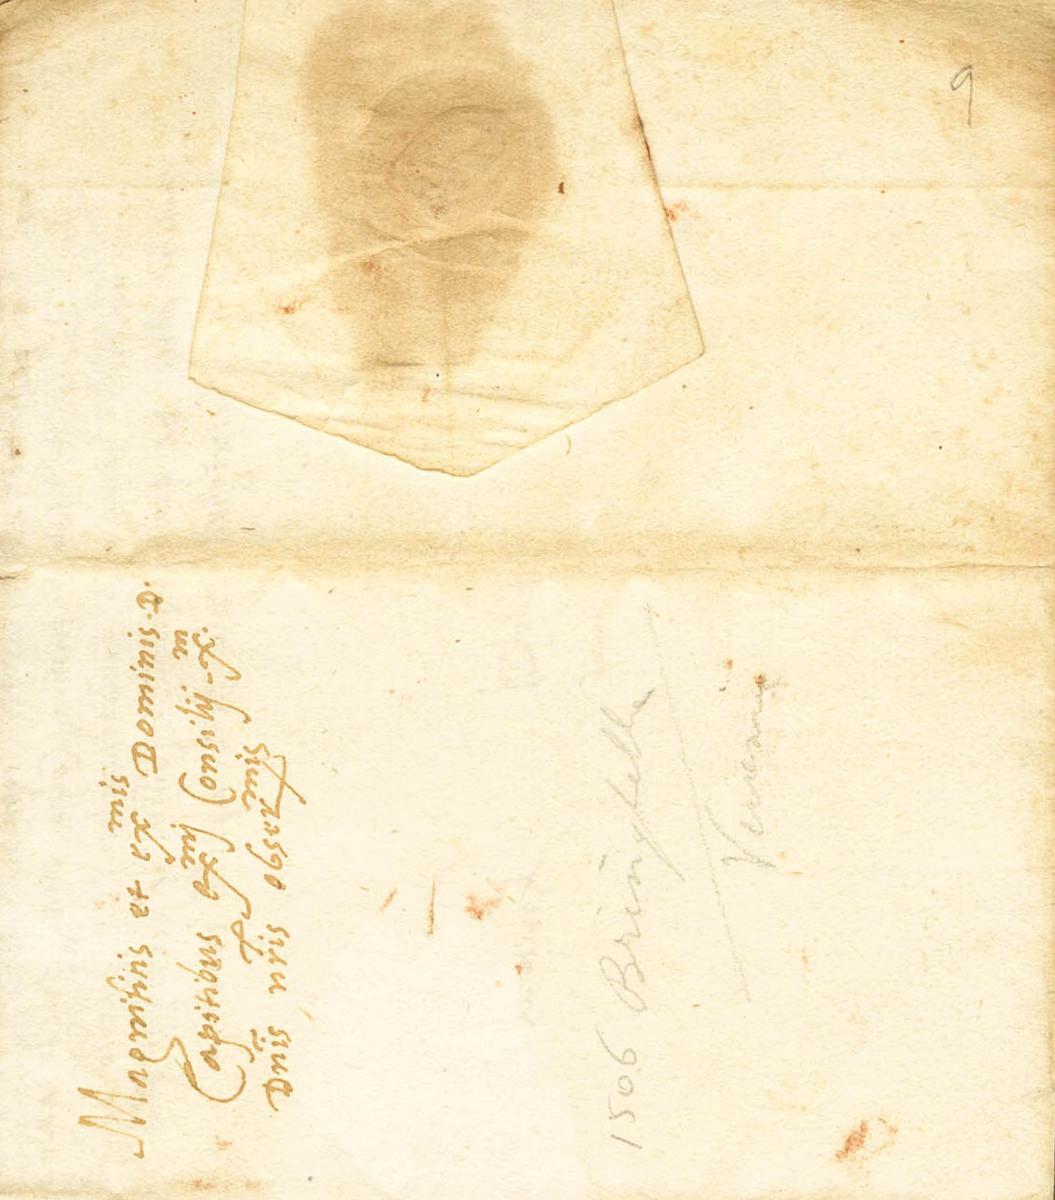 Magnificis et ex.mis Dominis D.
Capitibus Ex.mi Consilij. X.m
Dnis nris obser.mis
1506 Bringhella
9